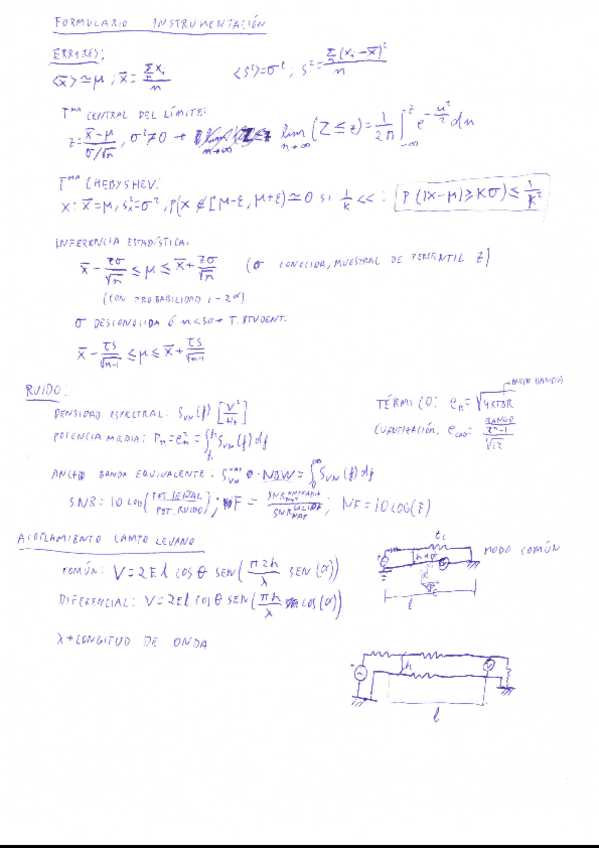 FORMULARIO INSTRUMENTACIÓN
ERRORES:
⟨x̄⟩ ≃ μ ; x̄ = Σxᵢ/n    ⟨s²⟩ = σ² ; s² = Σ(xᵢ - x̄)²/n
Tᵐᵃ CENTRAL DEL LÍMITE:
z = (x̄ - μ)/(σ/√n), σ² ≠ 0 → lim n→∞ (Z ≤ z) = 1/2π ∫_{-∞}^{z} e^{-u²/2} du
Tᵐᵃ CHEBYSHEV:
x : x̄ = μ, sₓ² = σ², p(x ∉ [μ-ε, μ+ε]) ≃ 0 si 1/k << : P(|x-μ| ≥ Kσ) ≤ 1/K²
INFERENCIA ESTADÍSTICA:
x̄ - zσ/√n ≤ μ ≤ x̄ + zσ/√n (σ CONOCIDA, MUESTRAL DE PERCENTIL Z)
(CON PROBABILIDAD 1-2α)
σ DESCONOCIDA Ó n<30 → T. STUDENT:
x̄ - τS/√(n-1) ≤ μ ≤ x̄ + τS/√(n-1)
RUIDO:
DENSIDAD ESPECTRAL: Sᵥₙ(f) [V²/Hz]
TÉRMICO: eₙ = √4KTBR
POTENCIA MEDIA: Pₙ = eₙ² = ∫ Sᵥₙ(f) df
CUANTIZACIÓN: = (RANGO/2ⁿ-1)/√12
ANCHO BANDA EQUIVALENTE: · NBW = ∫₀^∞ Sᵥₙ(f) df
SNR = 10 LOG (POT. SEÑAL/POT. RUIDO) ; F = SNR ENTRADA/SNR SALIDA ; NF = 10 LOG(F)
ACOPLAMIENTO CAMPO LEJANO
COMÚN: V = 2El COS θ SEN (π2h/λ SEN (α))
MODO COMÚN
DIFERENCIAL: V = 2El COS θ SEN (πh/λ COS (α))
l
λ → LONGITUD DE ONDA
h
l